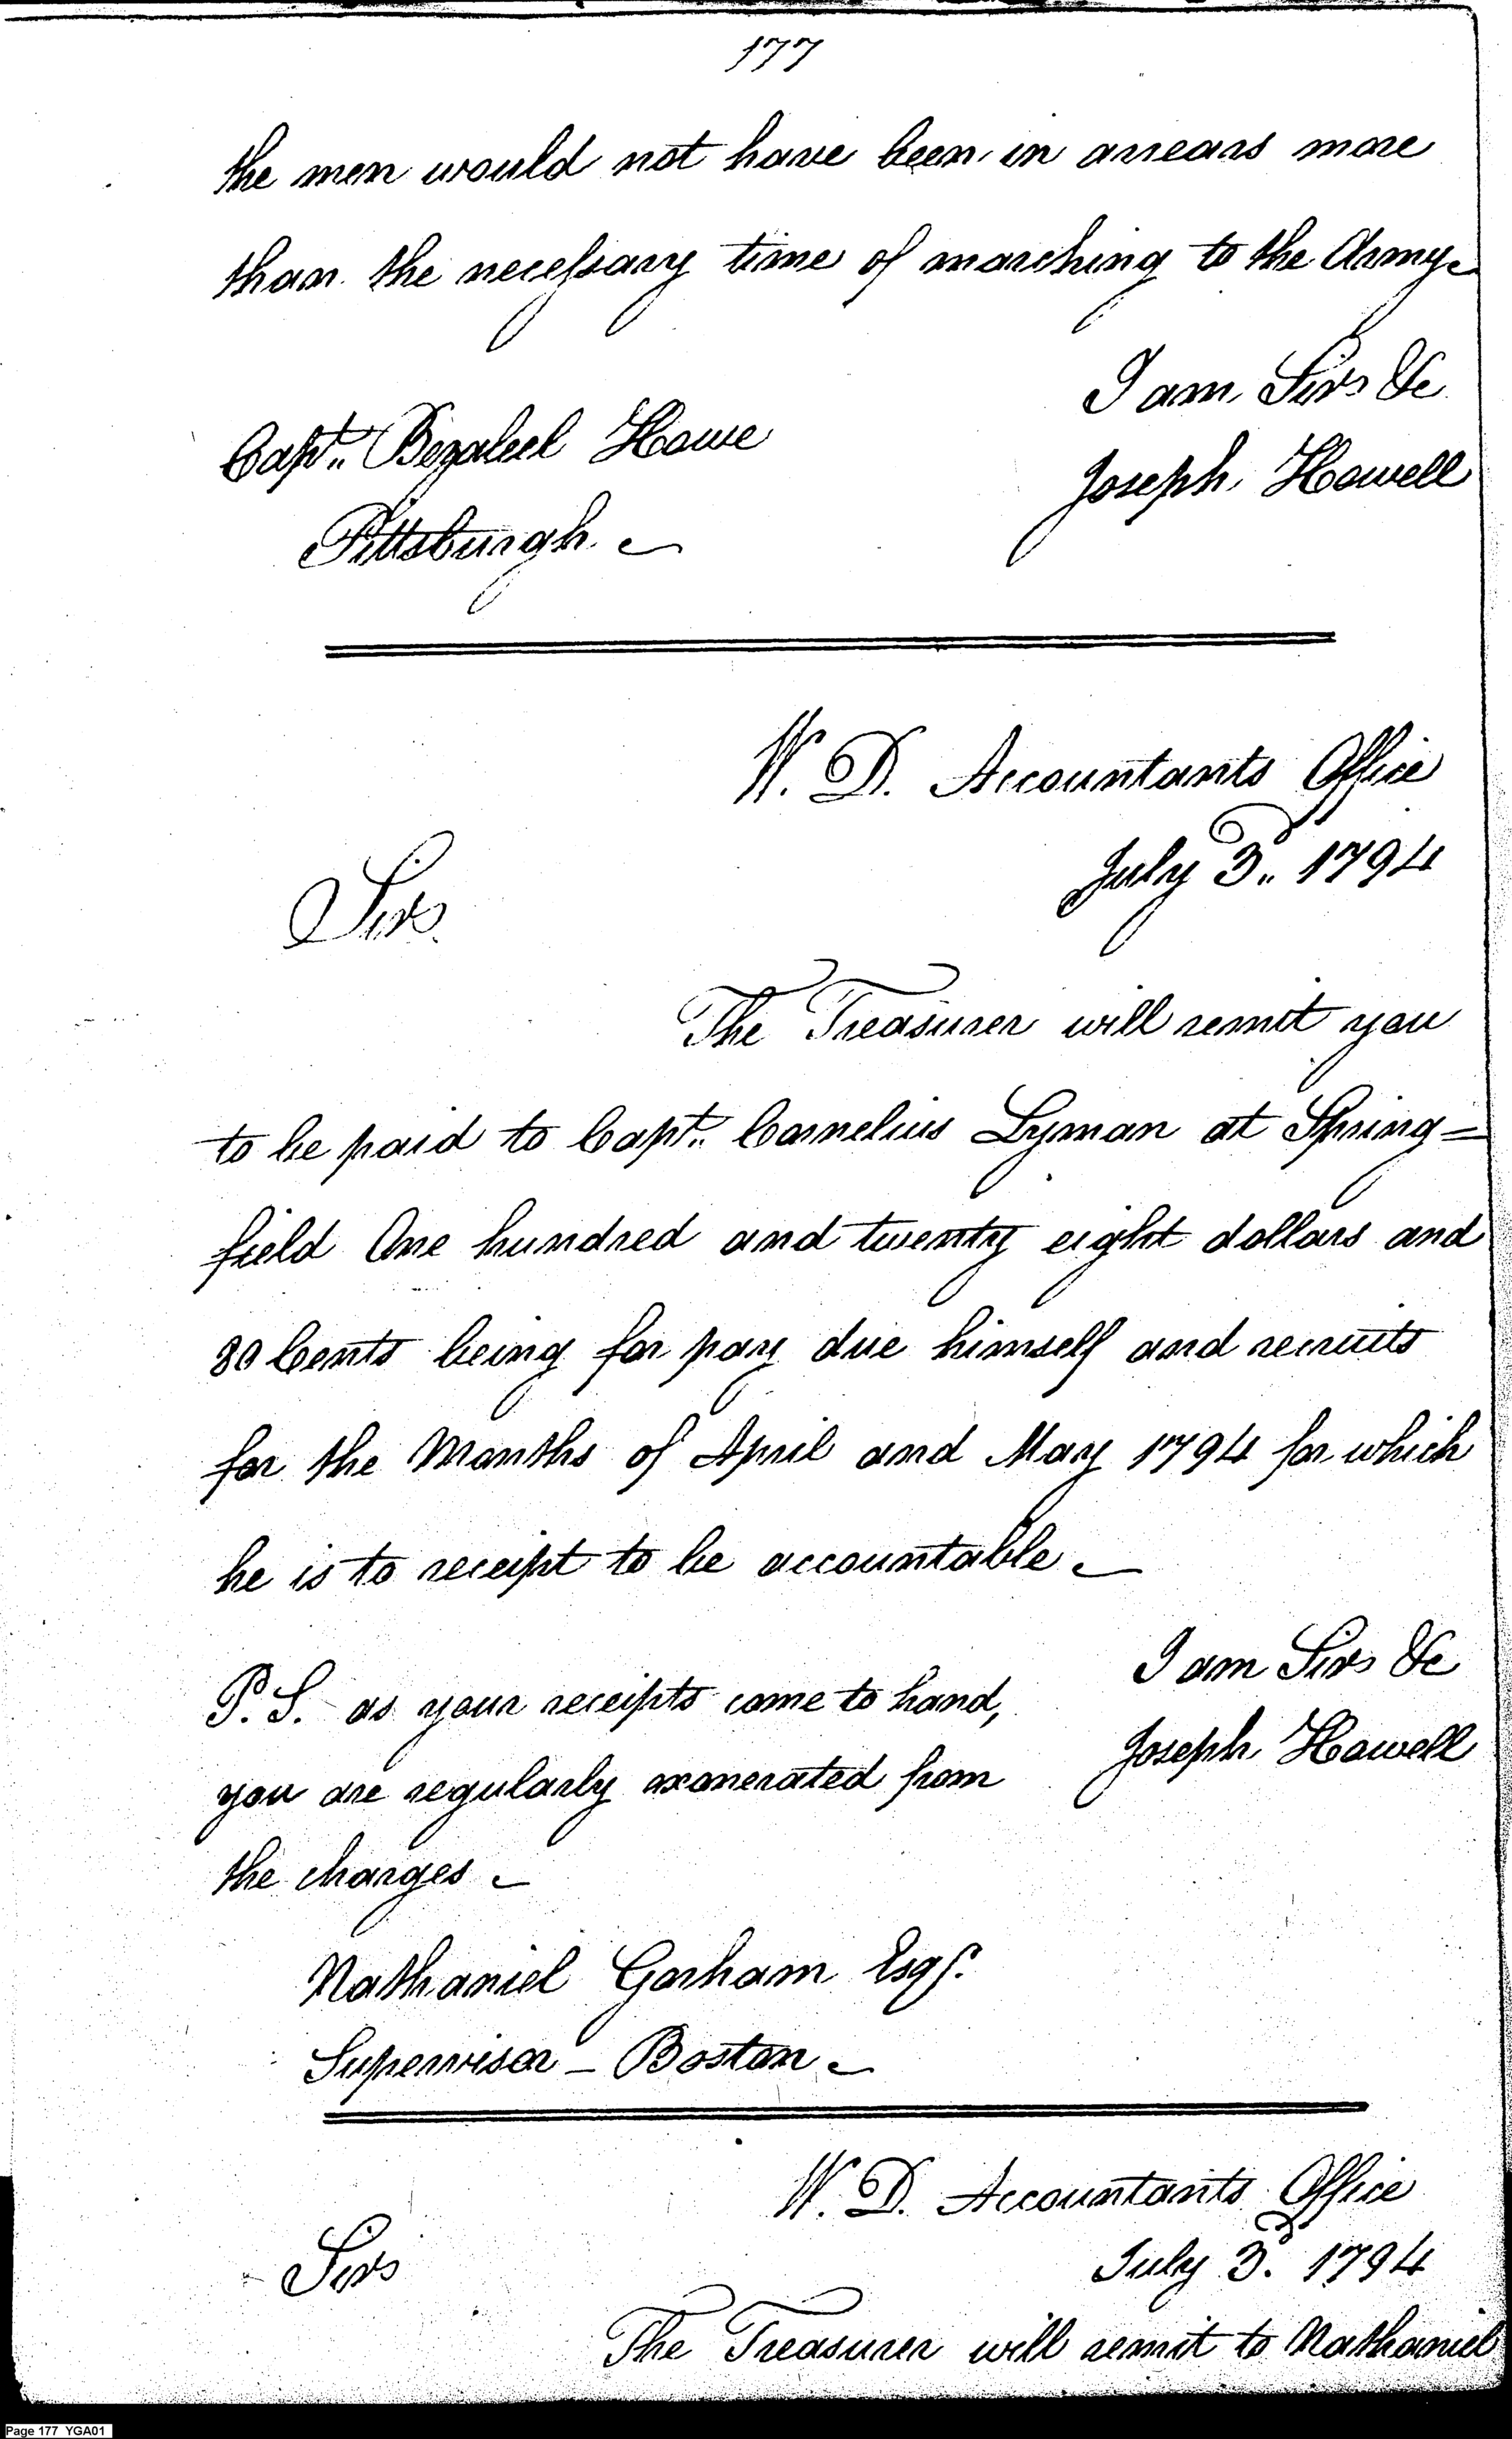 177
the men would not have been in arrears more
than the necessary time of marching to the Army
I am Sir &c
Capt. Bezaleel Howe
Joseph Howell
Pittsburgh
W. D. Accountants Office
July 3d. 1794
Sir
The Treasurer will remit you
to be paid to Capt. Cornelius Lyman at Spring=
field One hundred and twenty eight dollars and
80 Cents being for pay due himself and recruits
for the Months of April and May 1794 for which
he is to receipt to be accountable
I am Sir &c
P.S. as your receipts come to hand,
Joseph Howell
you are regularly exonerated from
the charges
Nathaniel Gorham Esqr.
Supervisor - Boston
W. D. Accountants Office
July 3d. 1794
Sir
The Treasurer will remit to Nathaniel
Page 177 YGA01